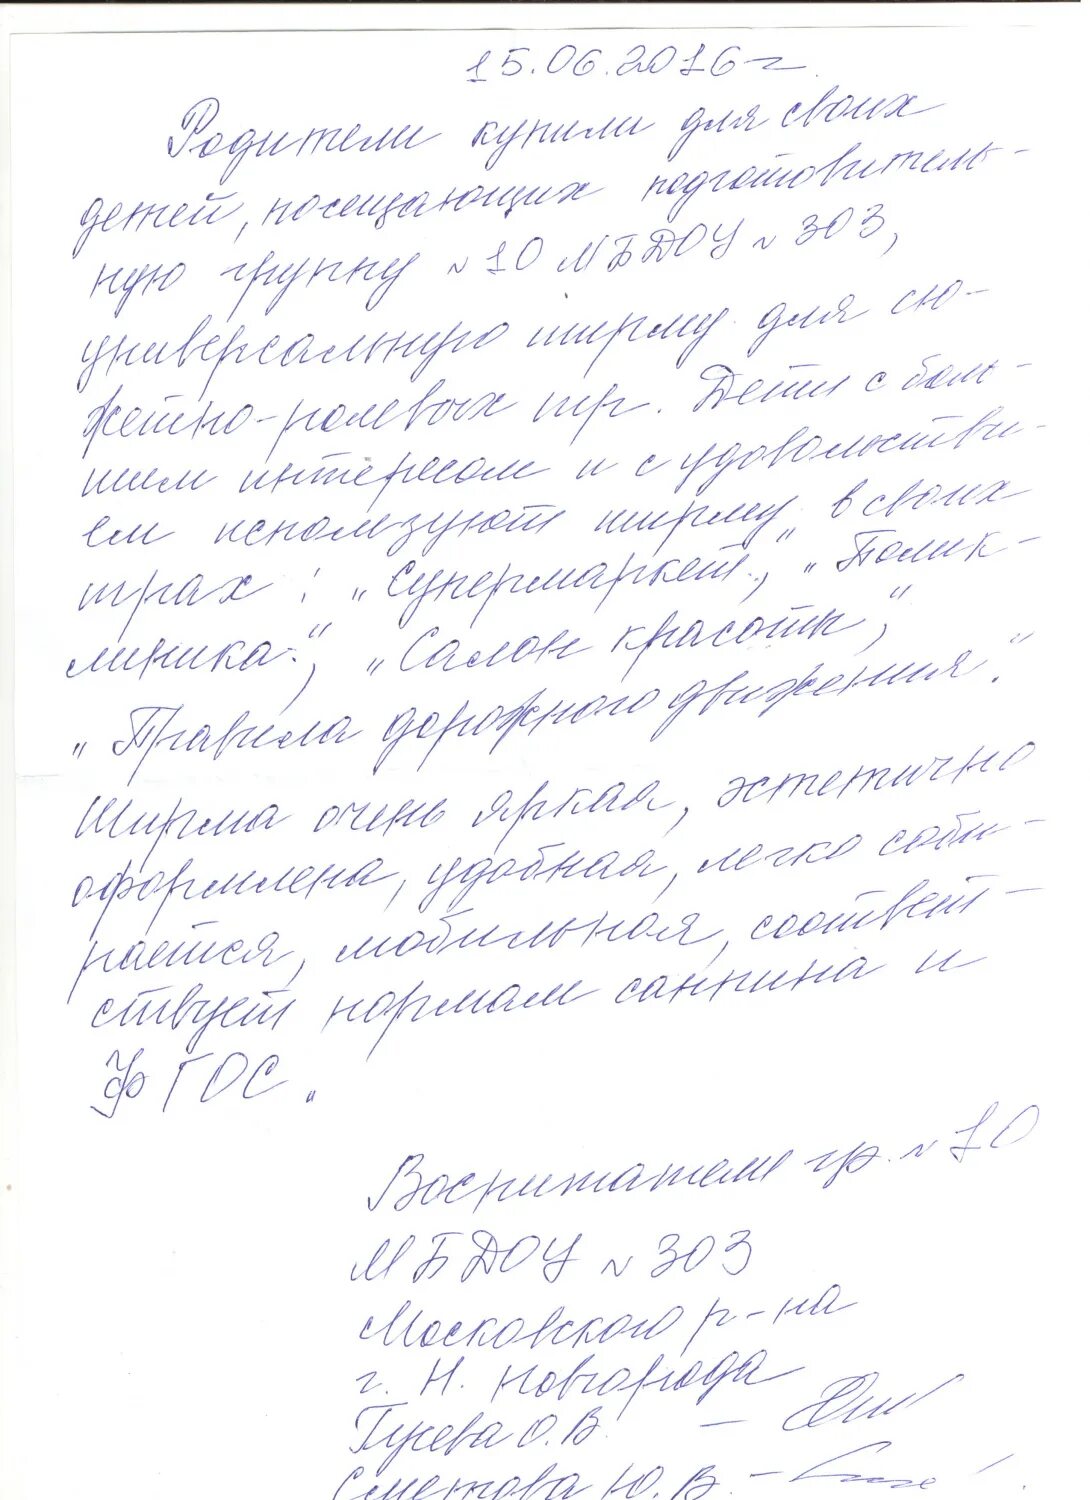 15.06.2016 г.
Родители купили для своих
детей, посещающих подготовитель-
ную группу №10 МБДОУ №303,
универсальную ширму для сю-
жетно-ролевых игр. Дети с боль-
шим интересом и с удовольстви-
ем используют ширму в своих
играх: „Супермаркет“, „Полик-
линика“, „Салон красоты“,
„Правила дорожного движения“.
Ширма очень яркая, эстетично
оформлена, удобная, легко соби-
рается, мобильная, соответ-
ствует нормам санпина и
ФГОС.
Воспитатели гр. №10
МБДОУ №303
Московского р-на
г. Н. Новгорода
О.В. –
Ю.В. –